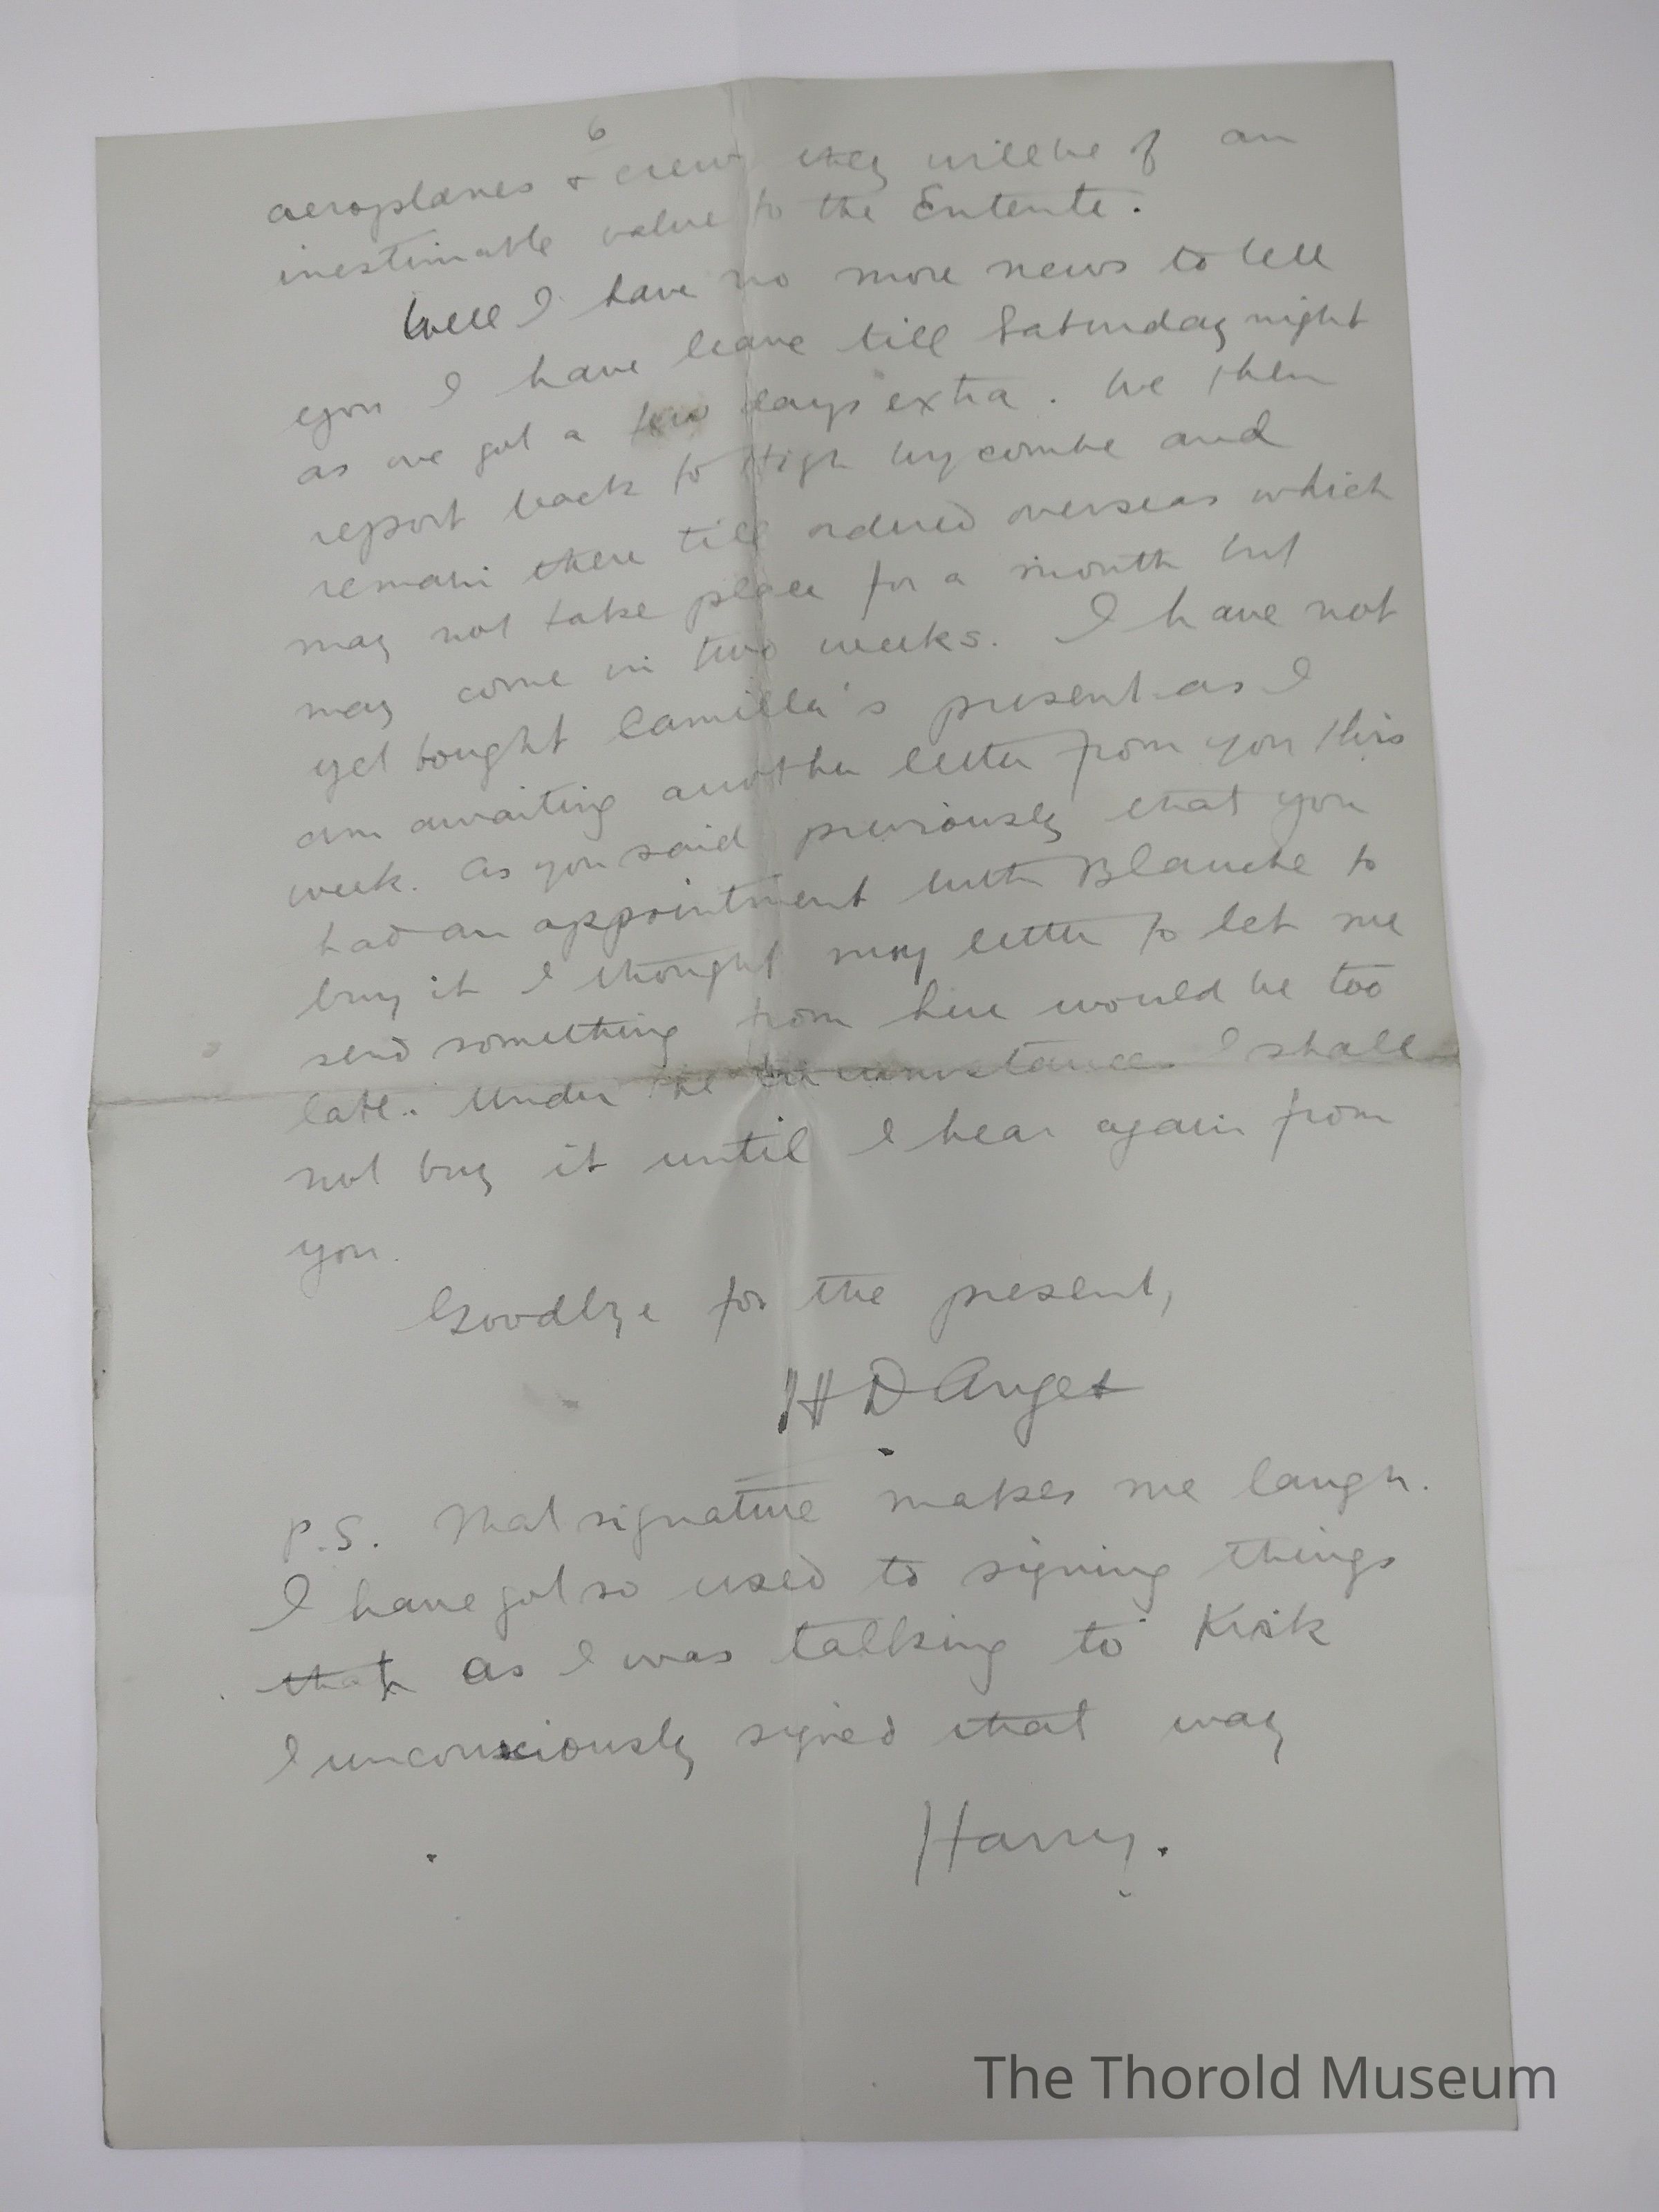 6
aeroplanes & crew they will be of an
inestimable value to the Entente.
Well I have no more news to tell
you I have leave till Saturday night
as we got a few days extra. We then
report back to High Wycombe and
remain there till ordered overseas which
may not take place for a month but
may come in two weeks. I have not
yet bought Camilla's present as I
am awaiting another letter from you this
week. As you said previously that you
had an appointment with Blanche to
buy it I thought my letter to let me
send something from here would be too
late. Under the circumstances I shall
not buy it until I hear again from
you.
Goodbye for the present,
H D Anget
P.S. That signature makes me laugh.
I have got so used to signing things
that as I was talking to Kirk
I unconsciously signed that way
Harry.
The Thorold Museum